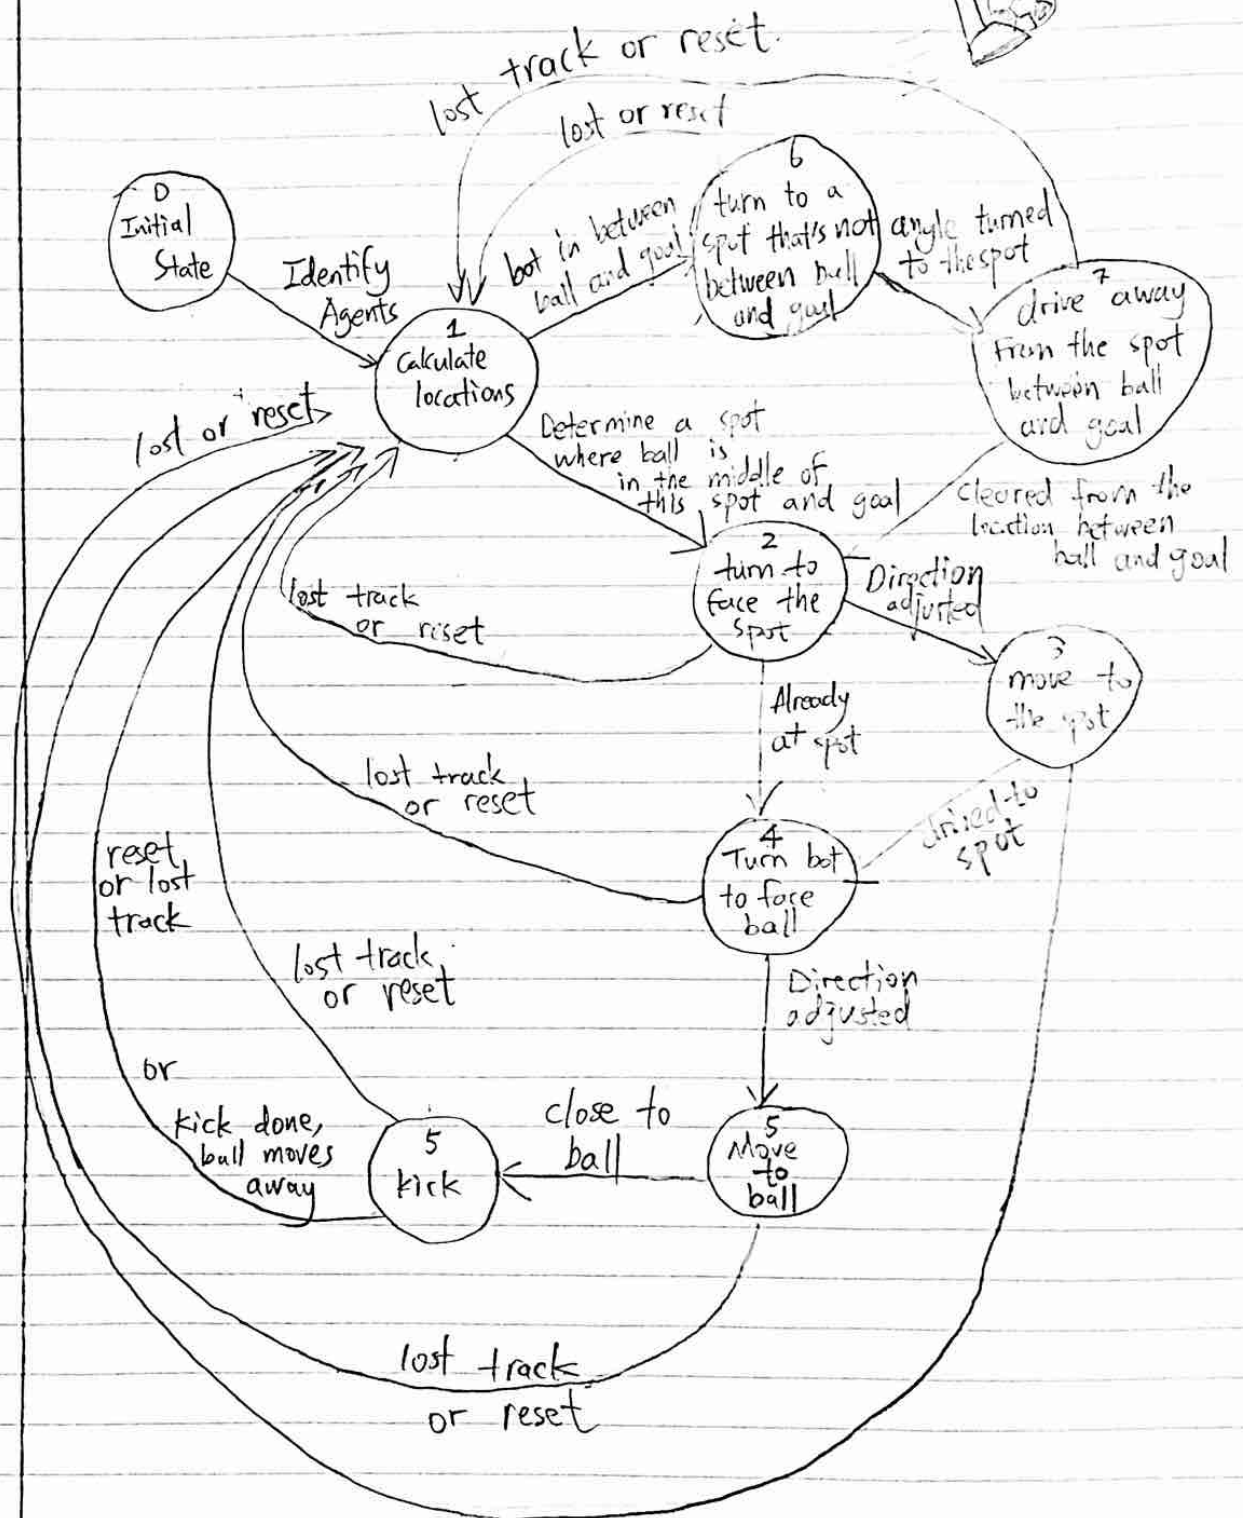 lost track or reset.
lost or reset
0
Initial
State
Identify
Agents
bot in between
ball and goal
6
turn to a
spot that's not
between ball
and goal
angle turned
to the spot
7
drive away
From the spot
between ball
and goal
1
Calculate
locations
lost or reset
Determine a spot
where ball is
in the middle of
this spot and goal
Cleared from the
location between
ball and goal
2
turn to
face the
spot
Direction
adjusted
3
move to
the spot
lost track
or reset
Already
at spot
drived to
spot
lost track
or reset
4
Turn bot
to face
ball
reset
or lost
track
lost track
or reset
Direction
adjusted
or
kick done,
ball moves
away
5
kick
close to
ball
5
Move
to
ball
lost track
or reset